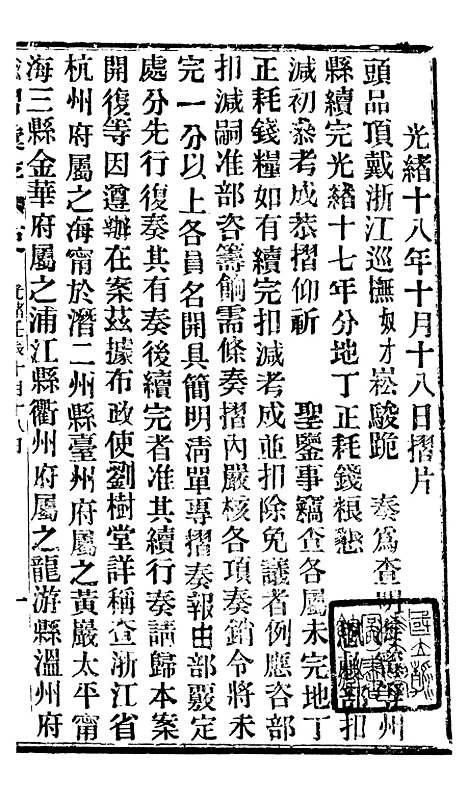 光緒十八年十月十八日摺片
頭品頂戴浙江巡撫奴才崧駿跪 奏爲查明海甯等州
縣續完光緒十七年分地丁正耗錢糧懇 部扣
減初叅考成恭摺仰祈 聖鑒事竊查各屬未完地丁
正耗錢糧如有續完扣減考成並扣除免議者例應咨部
扣減嗣准部咨籌餉需條奏摺內嚴核各項奏銷令將未
完一分以上各員名開具簡明清單專摺奏報由部覈定
處分先行復奏其有奏後續完者准其續行奏請歸本案
開復等因遵辦在案茲據布政使劉樹堂詳稱查浙江省
杭州府屬之海甯於潛二州縣臺州府屬之黃巖太平甯
海三縣金華府屬之浦江縣衢州府屬之龍游縣溫州府
光緒壬辰十月十八日
一